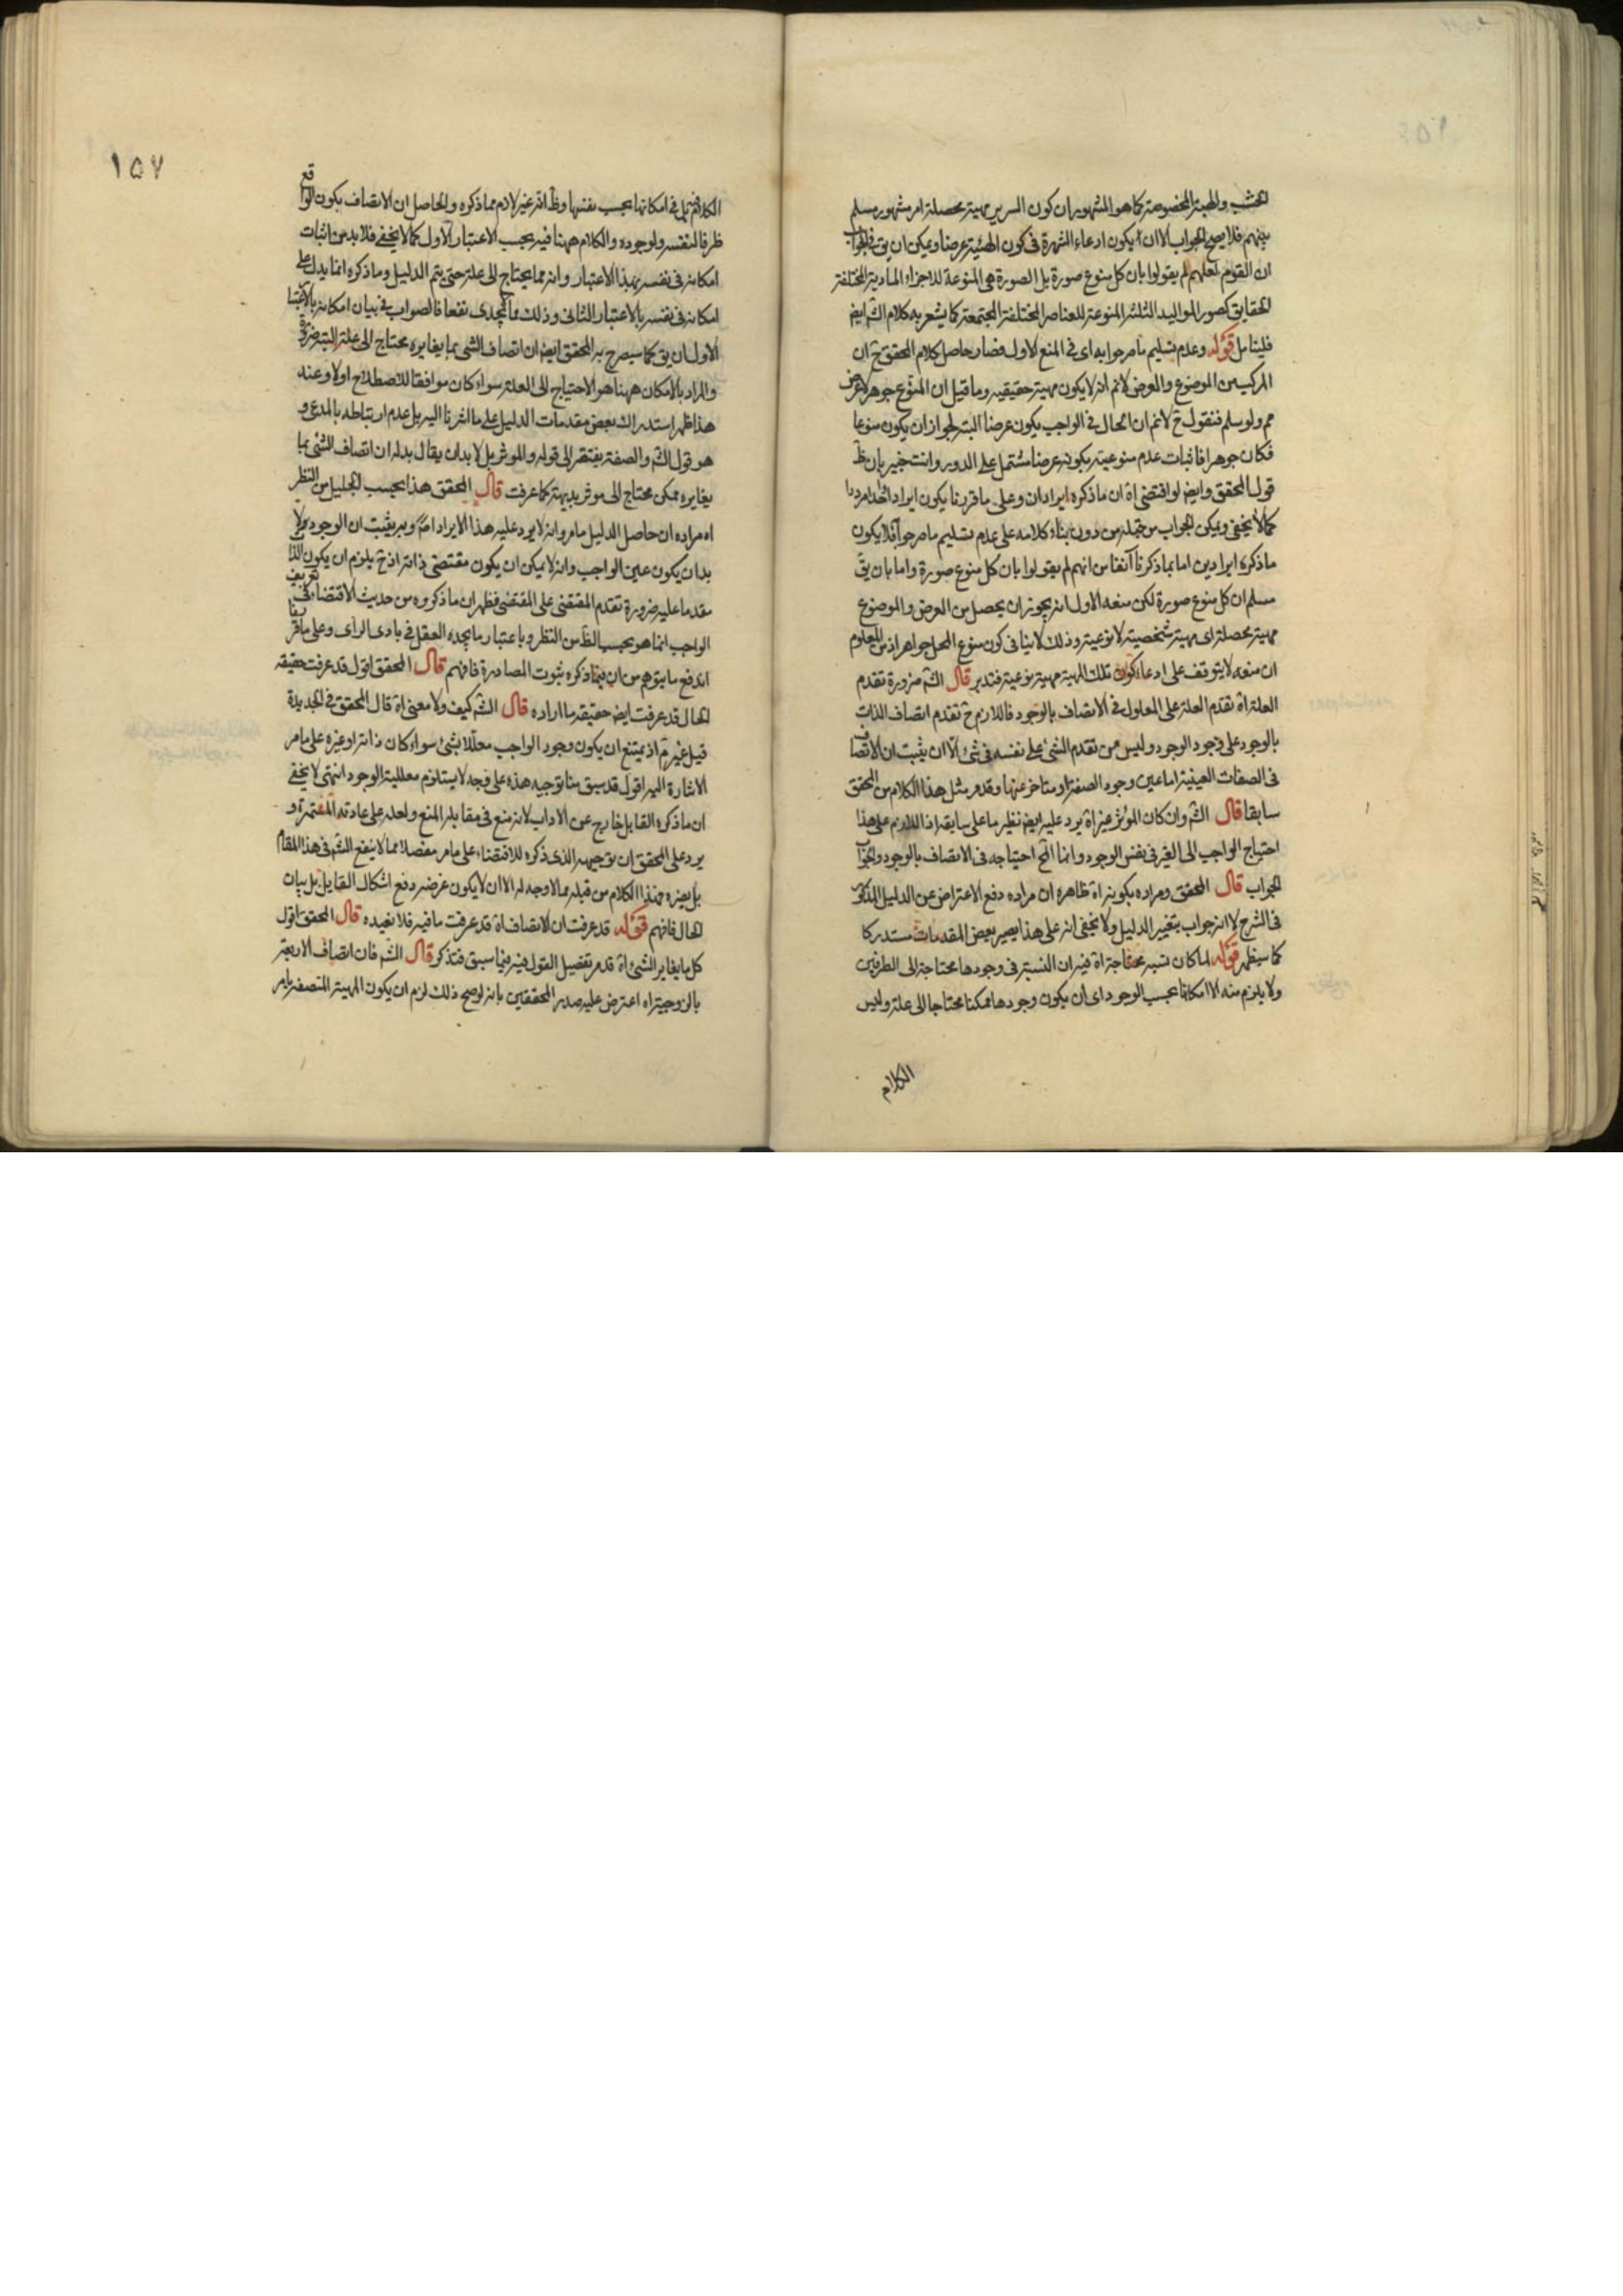 الخشب والهيئة المخصوصة كما هو المشهور ان كون السرير مهية محصلة امر مشهور مسلم
بينهم فلا يصح الجواب الا ان يكون ادعاء الشهرة فى كون الهيئة عرضا ويمكن ان يق فى الجواب
ان القوم لعلهم لم يقولوا بان كل منوع صورة بل الصورة هى المنوعة للاجزاء المادية المختلفة
الحقايق كصور المواليد الثلثة المنوعة للعناصر المختلفة المجتمعة كما يشعر به كلام الش ايض
فليتامل قوله وعدم تسليم ما مر جوابه اى فى المنع الاول فصار حاصل كلام المحقق ح ان
المركب من الموضوع والعرض لانم انه لا يكون مهية حقيقيه وما قيل ان المنوع جوهر لا عرض
مم ولو سلم فنقول ح لانم ان الحال فى الواجب يكون عرضا البتة لجواز ان يكون منوعا
فكان جوهرا فاثبات عدم منوعيته بكونه عرضا مشتمل على الدور وانت خبير بان ظ
قول المحقق وايض لو اقتضى اه ان ما ذكره ايرادان وعلى ما قررنا يكون ايرادا واحدا مرددا
كما لا يخفى ويمكن الجواب من قبله من دون بناء كلامه على عدم تسليم ما مر جوابه فلا يكون
ما ذكره ايرادين اما بما ذكرنا آنفا من انهم لم يقولوا بان كل منوع صورة واما بان يق
مسلم ان كل منوع صورة لكن منعه الاول انه يجوز ان يحصل من العرض والموضوع
مهية محصلة اى مهية شخصية لا نوعية وذلك لا ينافى كون منوع المحل جواهر اذ من المعلوم
ان منعه لا يتوقف على ادعاء كون تلك المهية مهية نوعية فتدبر قال الش ضرورة تقدم
العلة اه تقدم العلة على المعلول فى الاتصاف بالوجود فاللازم ح تقدم اتصاف الذات
بالوجود على وجود الوجود وليس من تقدم الشئ على نفسه فى شئ الا ان يثبت ان الاتصاف
فى الصفات العينية اما عين وجود الصفة او متاخر عنها وقد مر مثل هذا الكلام من المحقق
سابقا قال الش وان كان المؤثر غيره اه يرد عليه ايض نظير ما على سابقه اذ اللازم على هذا
احتياج الواجب الى الغير فى نفس الوجود وانما المح احتياجه فى الاتصاف بالوجود والجواب
الجواب قال المحقق ومراده بكونه اه ظاهره ان مراده دفع الاعتراض عن الدليل المذكور
فى الشرح لا انه جواب بتغيير الدليل ولا يخفى انه على هذا يصير بعض المقدمات مستدركا
كما سيظهر قوله لما كان نسبة محتاجة اه فيه ان النسبة فى وجودها محتاجة الى الطرفين
ولا يلزم منه الا امكانها بحسب الوجود اى ان يكون وجودها ممكنا محتاجا الى علة وليس
الكلام
١٥٧
الكلام ثم بل فى امكانها بحسب نفسها وظ انه غير لازم مما ذكره والحاصل ان الاتصاف بكون الواقع
ظرفا لنفسه ولوجوده والكلام ههنا فيه بحسب الاعتبار الاول كما لا يخفى فلا بد من اثبات
امكانه فى نفسه بهذا الاعتبار وانه مما يحتاج الى علة حتى يتم الدليل وما ذكره انما يدل على
امكانه فى نفسه بالاعتبار الثانى وذلك مما لا يجدى نفعا فالصواب فى بيان امكانه بالاعتبار
الاول ان يق كما سيصرح به المحقق ايض ان اتصاف الشئ بما يغايره محتاج الى علة البتة ضرورة
والمراد بالامكان ههنا هو الاحتياج الى العلة سواء كان موافقا للاصطلاح اولا وعند
هذا ظهر استدراك بعض مقدمات الدليل على ما اشرنا اليه بل عدم ارتباطه بالمدعى و
هو قول الش والصفة يفتقر الى قوله والموثر بل لا بد ان يقال بدله ان اتصاف الشئ بما
يغايره ممكن محتاج الى موثر بديهة كما عرفت قال المحقق هذا بحسب الجليل من النظر
اه مراده ان حاصل الدليل ما مر وانه لا يرد عليه هذا الايراد اصلا وبه يثبت ان الوجود لا
بد ان يكون عين الواجب وانه لا يمكن ان يكون مقتضى ذاته اذ ح يلزم ان يكون الذات
مقدما عليه ضرورة تقدم المقتضى على المقتضى فظهر ان ما ذكروه من حديث الاقتضاء فى تعريف
الواجب انما هو بحسب الظ من النظر وباعتبار ما يجده العقل فى بادى الراى وعلى ما قررنا
اندفع ما يتوهم من ان فيما ذكره شوب المصادرة فافهم قال المحقق اقول قد عرفت حقيقة
الحال قد عرفت ايض حقيقة ما اراده قال الش كيف ولا معنى اه قال المحقق فى الجديدة
قيل غير تم اذ يمتنع ان يكون وجود الواجب معللا بشئ سواء كان ذاته او غيره على ما مر
الاشارة اليه اقول قد سبق منا توجيه هذه على وجه لا يستلزم معللية الوجود انتهى لا يخفى
ان ما ذكره القايل خارج عن الاداب لانه منع فى مقابلة المنع ولعله على عادته المستمرة و
يرد على المحقق ان توجيهه الذى ذكره للاقتضاء على ما مر مفصلا مما لا ينفع الش فى هذا المقام
بل يضره فهذا الكلام من قبله مما لا وجه له الا ان لا يكون غرضه دفع اشكال القايل بل بيان
الحال فافهم قوله قد عرفت ان الاتصاف اه قد عرفت ما فيه فلا نعيده قال المحقق اقول
كل ما يغاير الشئ اه قد مر تفصيل القول فيه فيما سبق فتذكر قال الش فان اتصاف الاربعة
بالزوجية اه اعترض عليه صدر المحققين بانه لو صح ذلك لزم ان يكون المهية المتصفة بامر